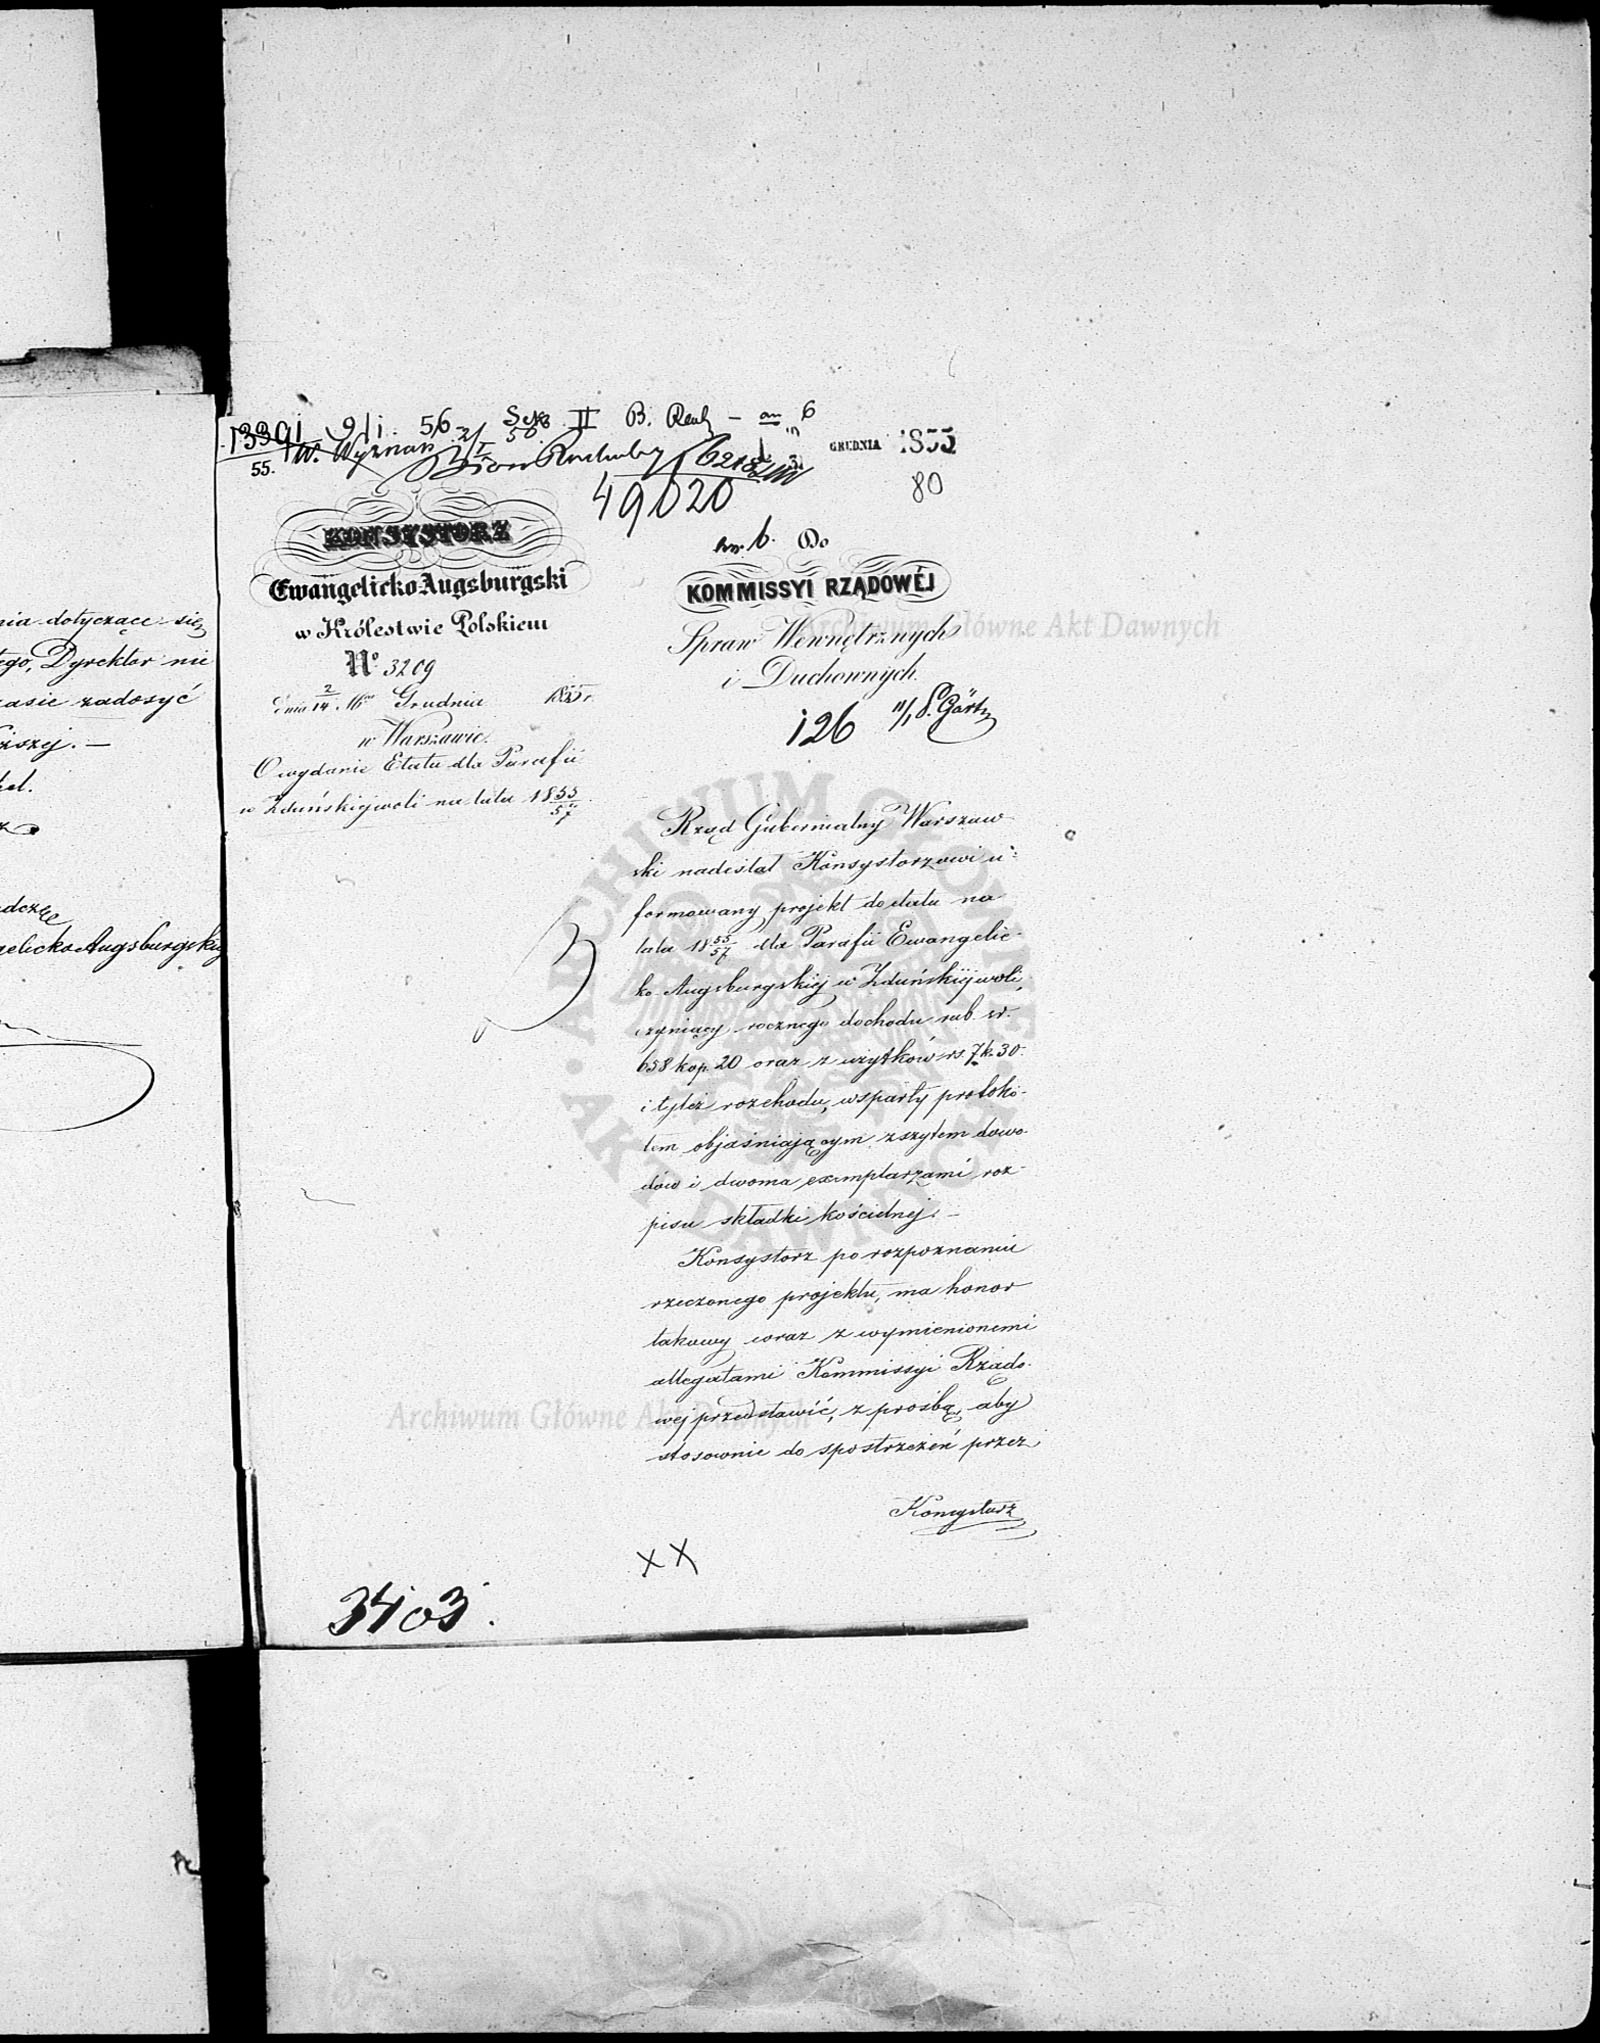 nia dotyczące się
tego, Dyrektor nie
zasie zadosyć
elicko Augsburgskiy
13391 9/1 56 Sek II B. Rach — 6
55. W. Wyznań
GRUDNIA 1855
49020
80
KONSYSTORZ
Ewangelicko Augsburgski
w Królestwie Polskiem
Nº 3209
dnia 2/14 16go Grudnia 1855 r.
w Warszawie.
O wydanie Etatu dla Parafii
w Zduńskiejwoli na lata 1855/57.
6. Do
KOMMISSYI RZĄDOWÉJ
Spraw Wewnętrznych
i Duchownych.
126 11/1 S. Gärtn
Rząd Gubernialny Warszaw
ski nadesłał Konsystorzowi u=
formowany projekt do etatu na
lata 1855/57 dla Parafii Ewangelic-
ko-Augsburgskiej w Zduńskiejwoli,
czyniący rocznego dochodu rub. sr.
658 kop. 20 oraz z użytków rs. 7 k. 30.
i tyleż rozchodu, wsparty protokó-
łem objaśniającym zszytem dowo-
dów i dwoma exemplarzami roz-
pisu składki kościelnej. —
Konsystorz po rozpoznaniu
rzeczonego projektu, ma honor
takowy wraz z wymienionemi
allegatami Kommissyi Rządo-
wej przedstawić, z prośbą, aby
stosownie do spostrzeżeń przez
Konsystorz
X X
3403.
Archiwum Główne Akt Dawnych
Archiwum Główne Akt Dawnych
ARCHIWUM GŁÓWNE • AKT DAWNYCH •